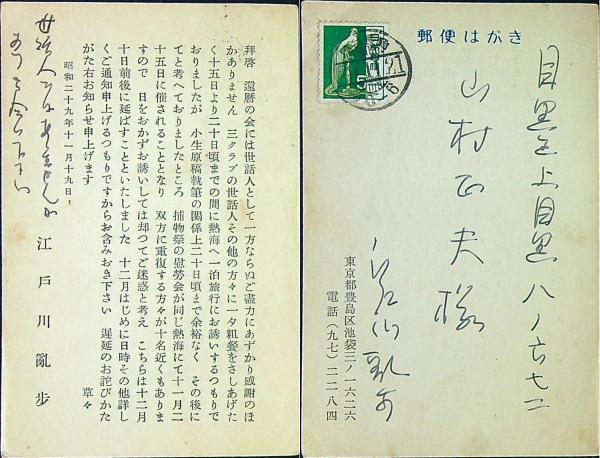 拝啓　還暦の会には世話人として一方ならぬご盡力にあずかり感謝のほ
かありません　三クラブの世話人その他の方々に一夕粗餐をさしあげた
く十五日より二十日頃までの間に熱海へ一泊旅行にお誘いするつもりで
おりましたが　小生原稿執筆の関係上二十日頃まで余裕なく　その後に
てと考へておりましたところ　捕物祭の慰労会が同じ熱海にて十一月二
十五日に催されることとなり　双方に重復する方々が十名近くもありま
すので　日をおかずお誘いしては却つてご迷惑と考え　こちらは十二月
十日前後に延ばすことといたしました　十二月はじめに日時その他詳し
くご通知申上げるつもりですからお含みおき下さい　遅延のお詫びかた
がた右お知らせ申上げます
草々
昭和二十九年十一月十九日
江戸川亂步
世話人ではありませんが
郵便はがき
目黒区上目黒八ノ六七二
山村正夫様
東京都豊島区池袋三ノ一六二六
電話（九七）二一八四
江戸川乱歩